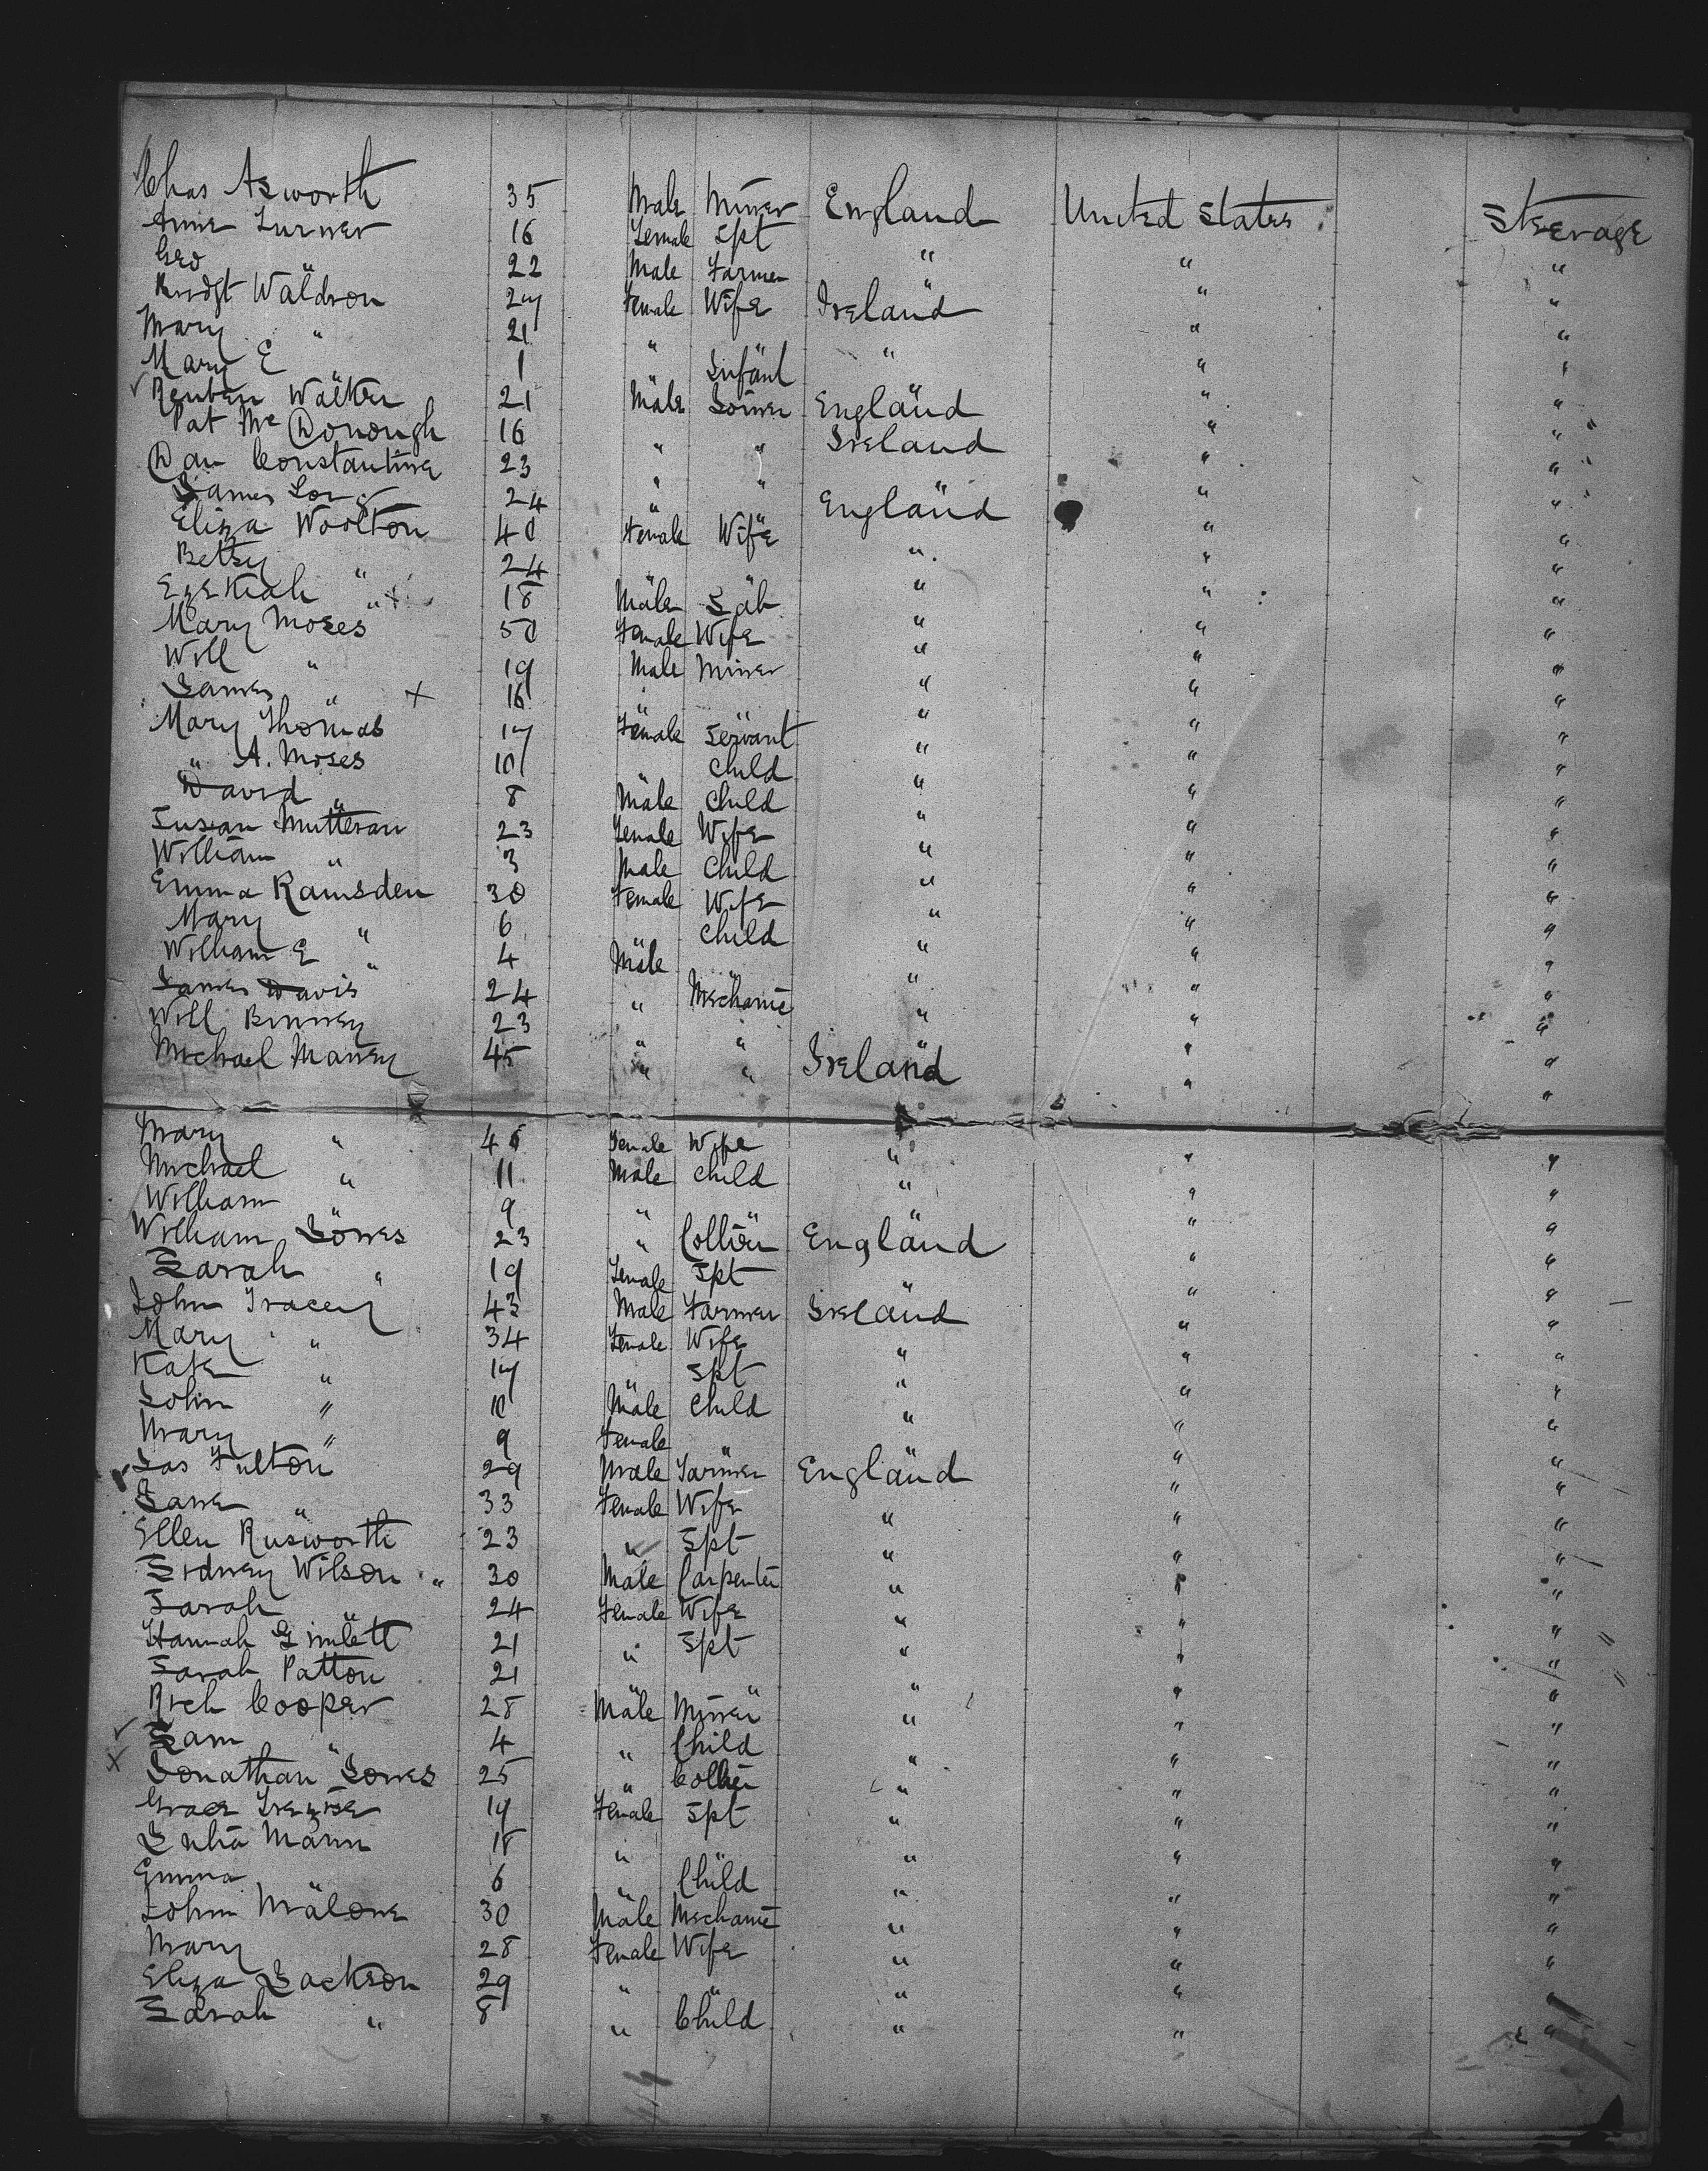 Chas Asworth 35 Male Miner England United States Steerage
Anne Turner 16 Female Spt " " "
Geo 22 Male Farmer " "
Bridgt Waldron 27 Female Wife Ireland " "
Mary " 21 " " " "
Mary E 1 Infant " "
Reuben Walker 21 Male England " "
Pat Mc Donough 16 " " Ireland " "
Dan Constantine 23 " " " "
James 24 " England " "
Eliza Woolton 40 Female Wife " " "
Betsy " 24 " " "
Ezekiah " 18 Male Lab " " "
Mary Moses 50 Female Wife " " "
Will " 19 Male Miner " " "
James " + 16 " " " "
Mary Thomas 17 Female Servant " " "
" A. Moses 10 Child " " "
David " 8 Male Child " " "
Susan 23 Female Wife " " "
William " 3 Male Child " " "
Emma Ramsden 30 Female Wife " " "
Mary " 6 Child " " "
William E " 4 Male " " "
James Davis 24 " Mechanic " " "
Will Binney 23 " " " " "
Michael 45 " " Ireland " "
Mary " 45 Female Wife " " "
Michael " 11 Male Child " " "
William 9 " " " "
William Jones 23 " Collier England " "
Sarah " 19 Female Spt " " "
John Tracey 43 Male Farmer Ireland " "
Mary " 34 Female Wife " " "
Kate " 17 " Spt " " "
John " 10 Male Child " " "
Mary " 9 Female " "
Jas Fulton 29 Male Farmer England " "
Jane " 33 Female Wife " " "
Ellen Rusworth 23 " Spt " " "
Sidney Wilson " 30 Male Carpenter " " "
Sarah 24 Female Wife " " "
Hannah Gimlett 21 " Spt " " "
Sarah Patton 21 " " "
Rich Cooper 28 Male Miner " " "
Sam " 4 " Child " " "
Jonathan Jones 25 " Collier " " "
Grace 19 Female Spt " " "
Julia Mann 18 " " " "
Emma 6 " Child " " "
John Malone 30 Male Mechanic " " "
Mary 28 Female Wife " " "
Eliza Jackson 29 " " " " "
Sarah " 8 " Child " " "